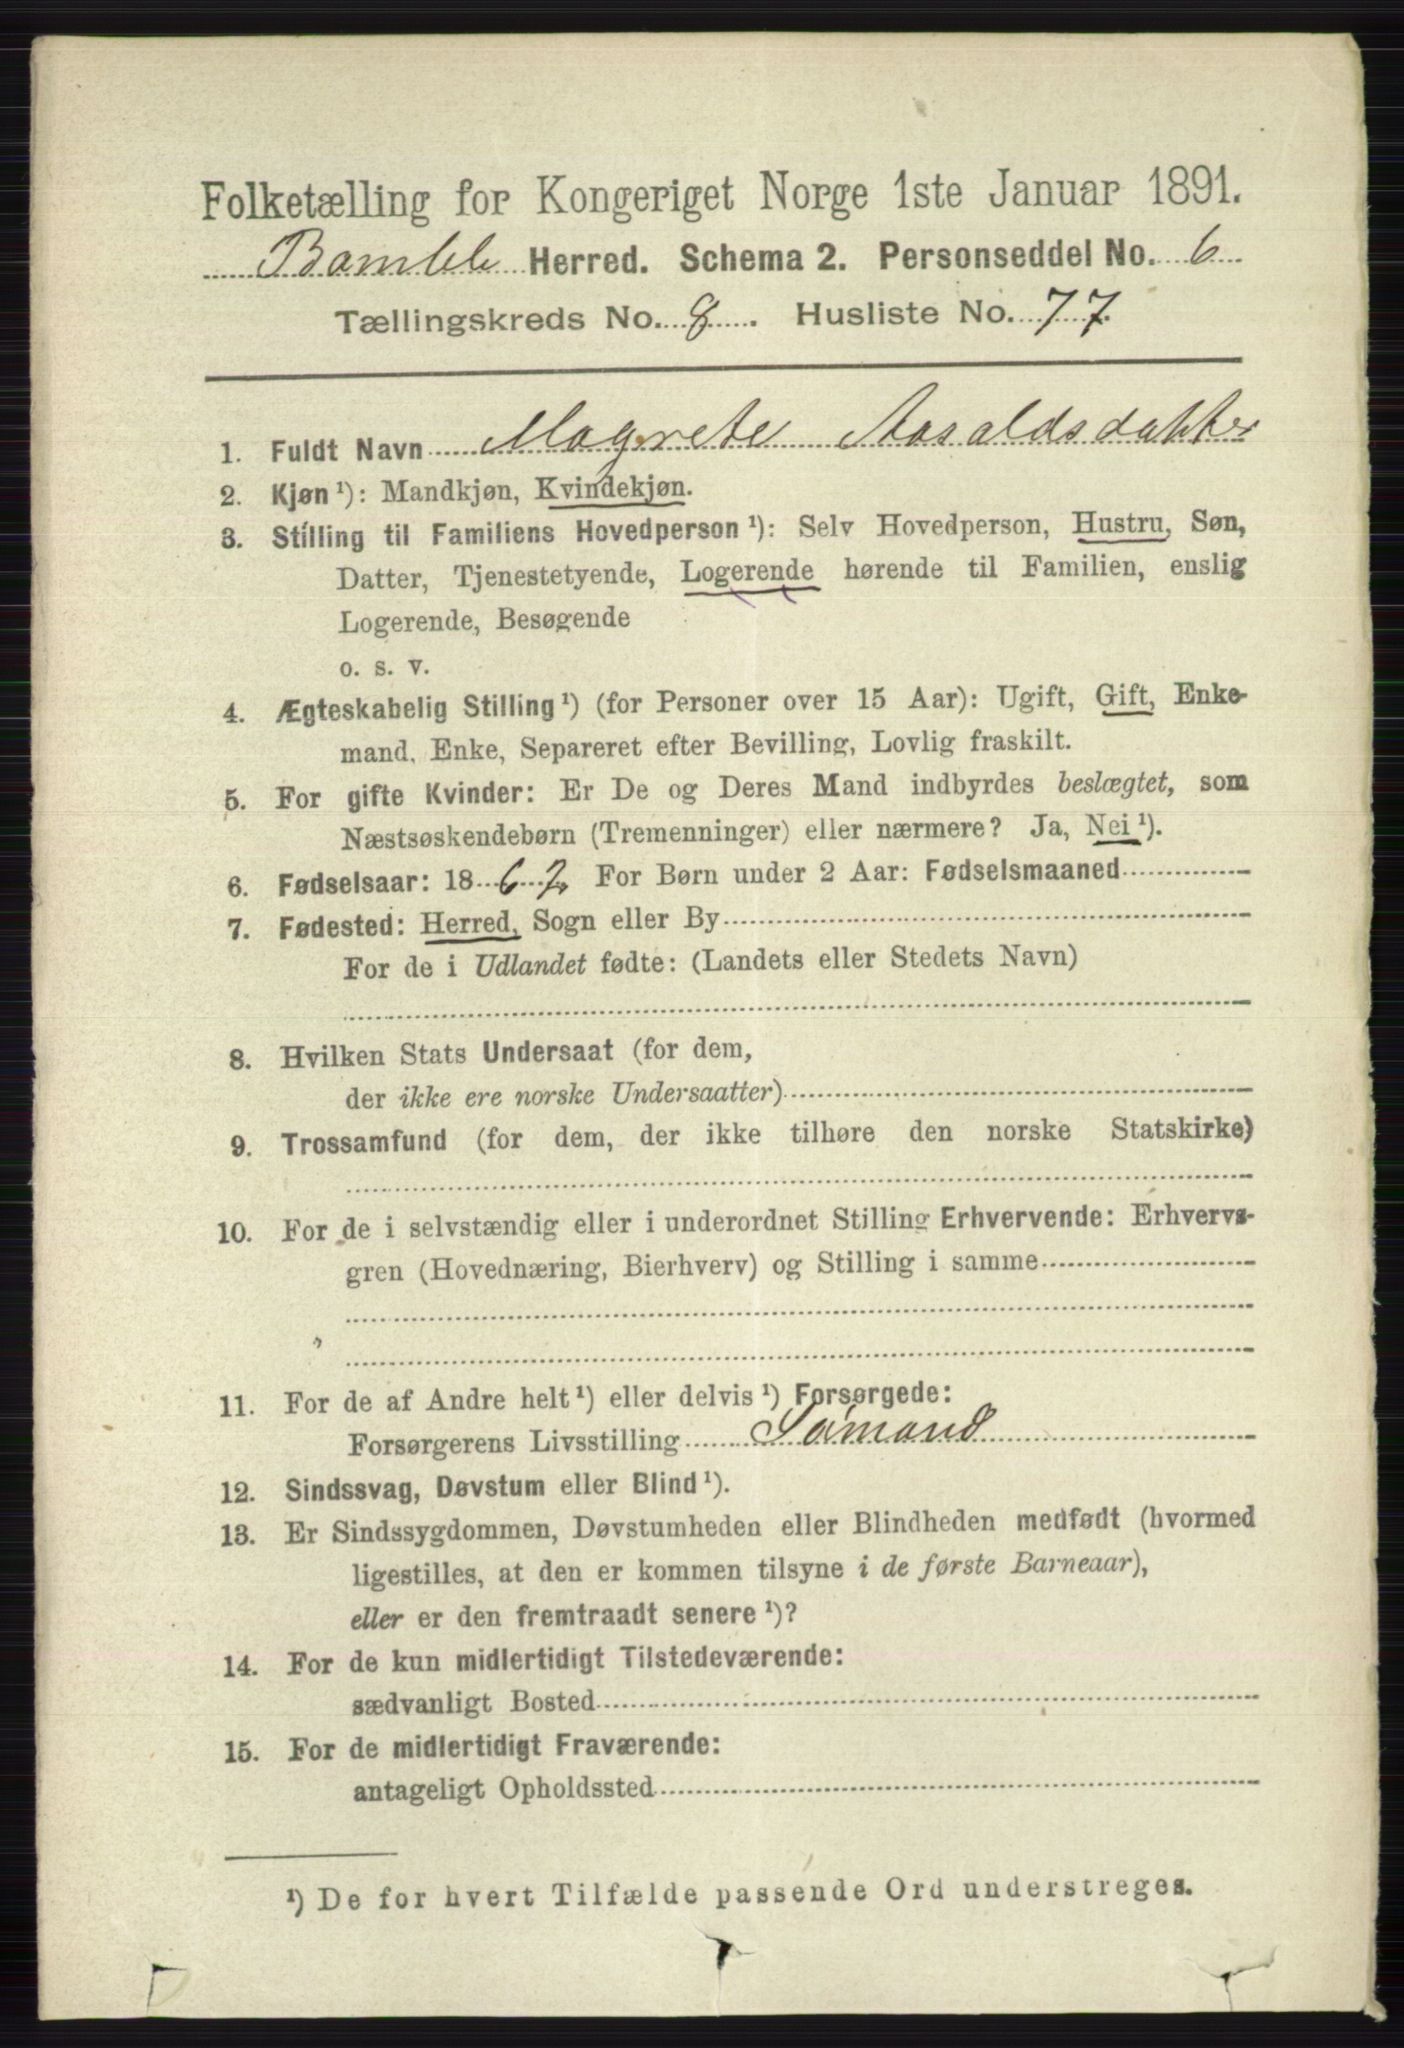 Folketælling for Kongeriget Norge 1ste Januar 1891.
Bamble Herred. Schema 2. Personseddel No. 6
Tællingskreds No. 8. Husliste No. 77.
1. Fuldt Navn Magrete Aasaldsdatter
2. Kjøn ¹): Mandkjøn, Kvindekjøn.
3. Stilling til Familiens Hovedperson ¹): Selv Hovedperson, Hustru, Søn,
Datter, Tjenestetyende, Logerende hørende til Familien, enslig
Logerende, Besøgende
o. s. v.
4. Ægteskabelig Stilling ¹) (for Personer over 15 Aar): Ugift, Gift, Enke-
mand, Enke, Separeret efter Bevilling, Lovlig fraskilt.
5. For gifte Kvinder: Er De og Deres Mand indbyrdes beslægtet, som
Næstsøskendebørn (Tremenninger) eller nærmere? Ja, Nei ¹).
6. Fødselsaar: 1867. For Børn under 2 Aar: Fødselsmaaned
7. Fødested: Herred, Sogn eller By
For de i Udlandet fødte: (Landets eller Stedets Navn)
8. Hvilken Stats Undersaat (for dem,
der ikke ere norske Undersaatter)
9. Trossamfund (for dem, der ikke tilhøre den norske Statskirke)
10. For de i selvstændig eller i underordnet Stilling Erhvervende: Erhvervs-
gren (Hovednæring, Bierhverv) og Stilling i samme
11. For de af Andre helt ¹) eller delvis ¹) Forsørgede:
Forsørgerens Livsstilling Sømand
12. Sindssvag, Døvstum eller Blind ¹).
13. Er Sindssygdommen, Døvstumheden eller Blindheden medfødt (hvormed
ligestilles, at den er kommen tilsyne i de første Barneaar),
eller er den fremtraadt senere ¹)?
14. For de kun midlertidigt Tilstedeværende:
sædvanligt Bosted
15. For de midlertidigt Fraværende:
antageligt Opholdssted
¹) De for hvert Tilfælde passende Ord understreges.